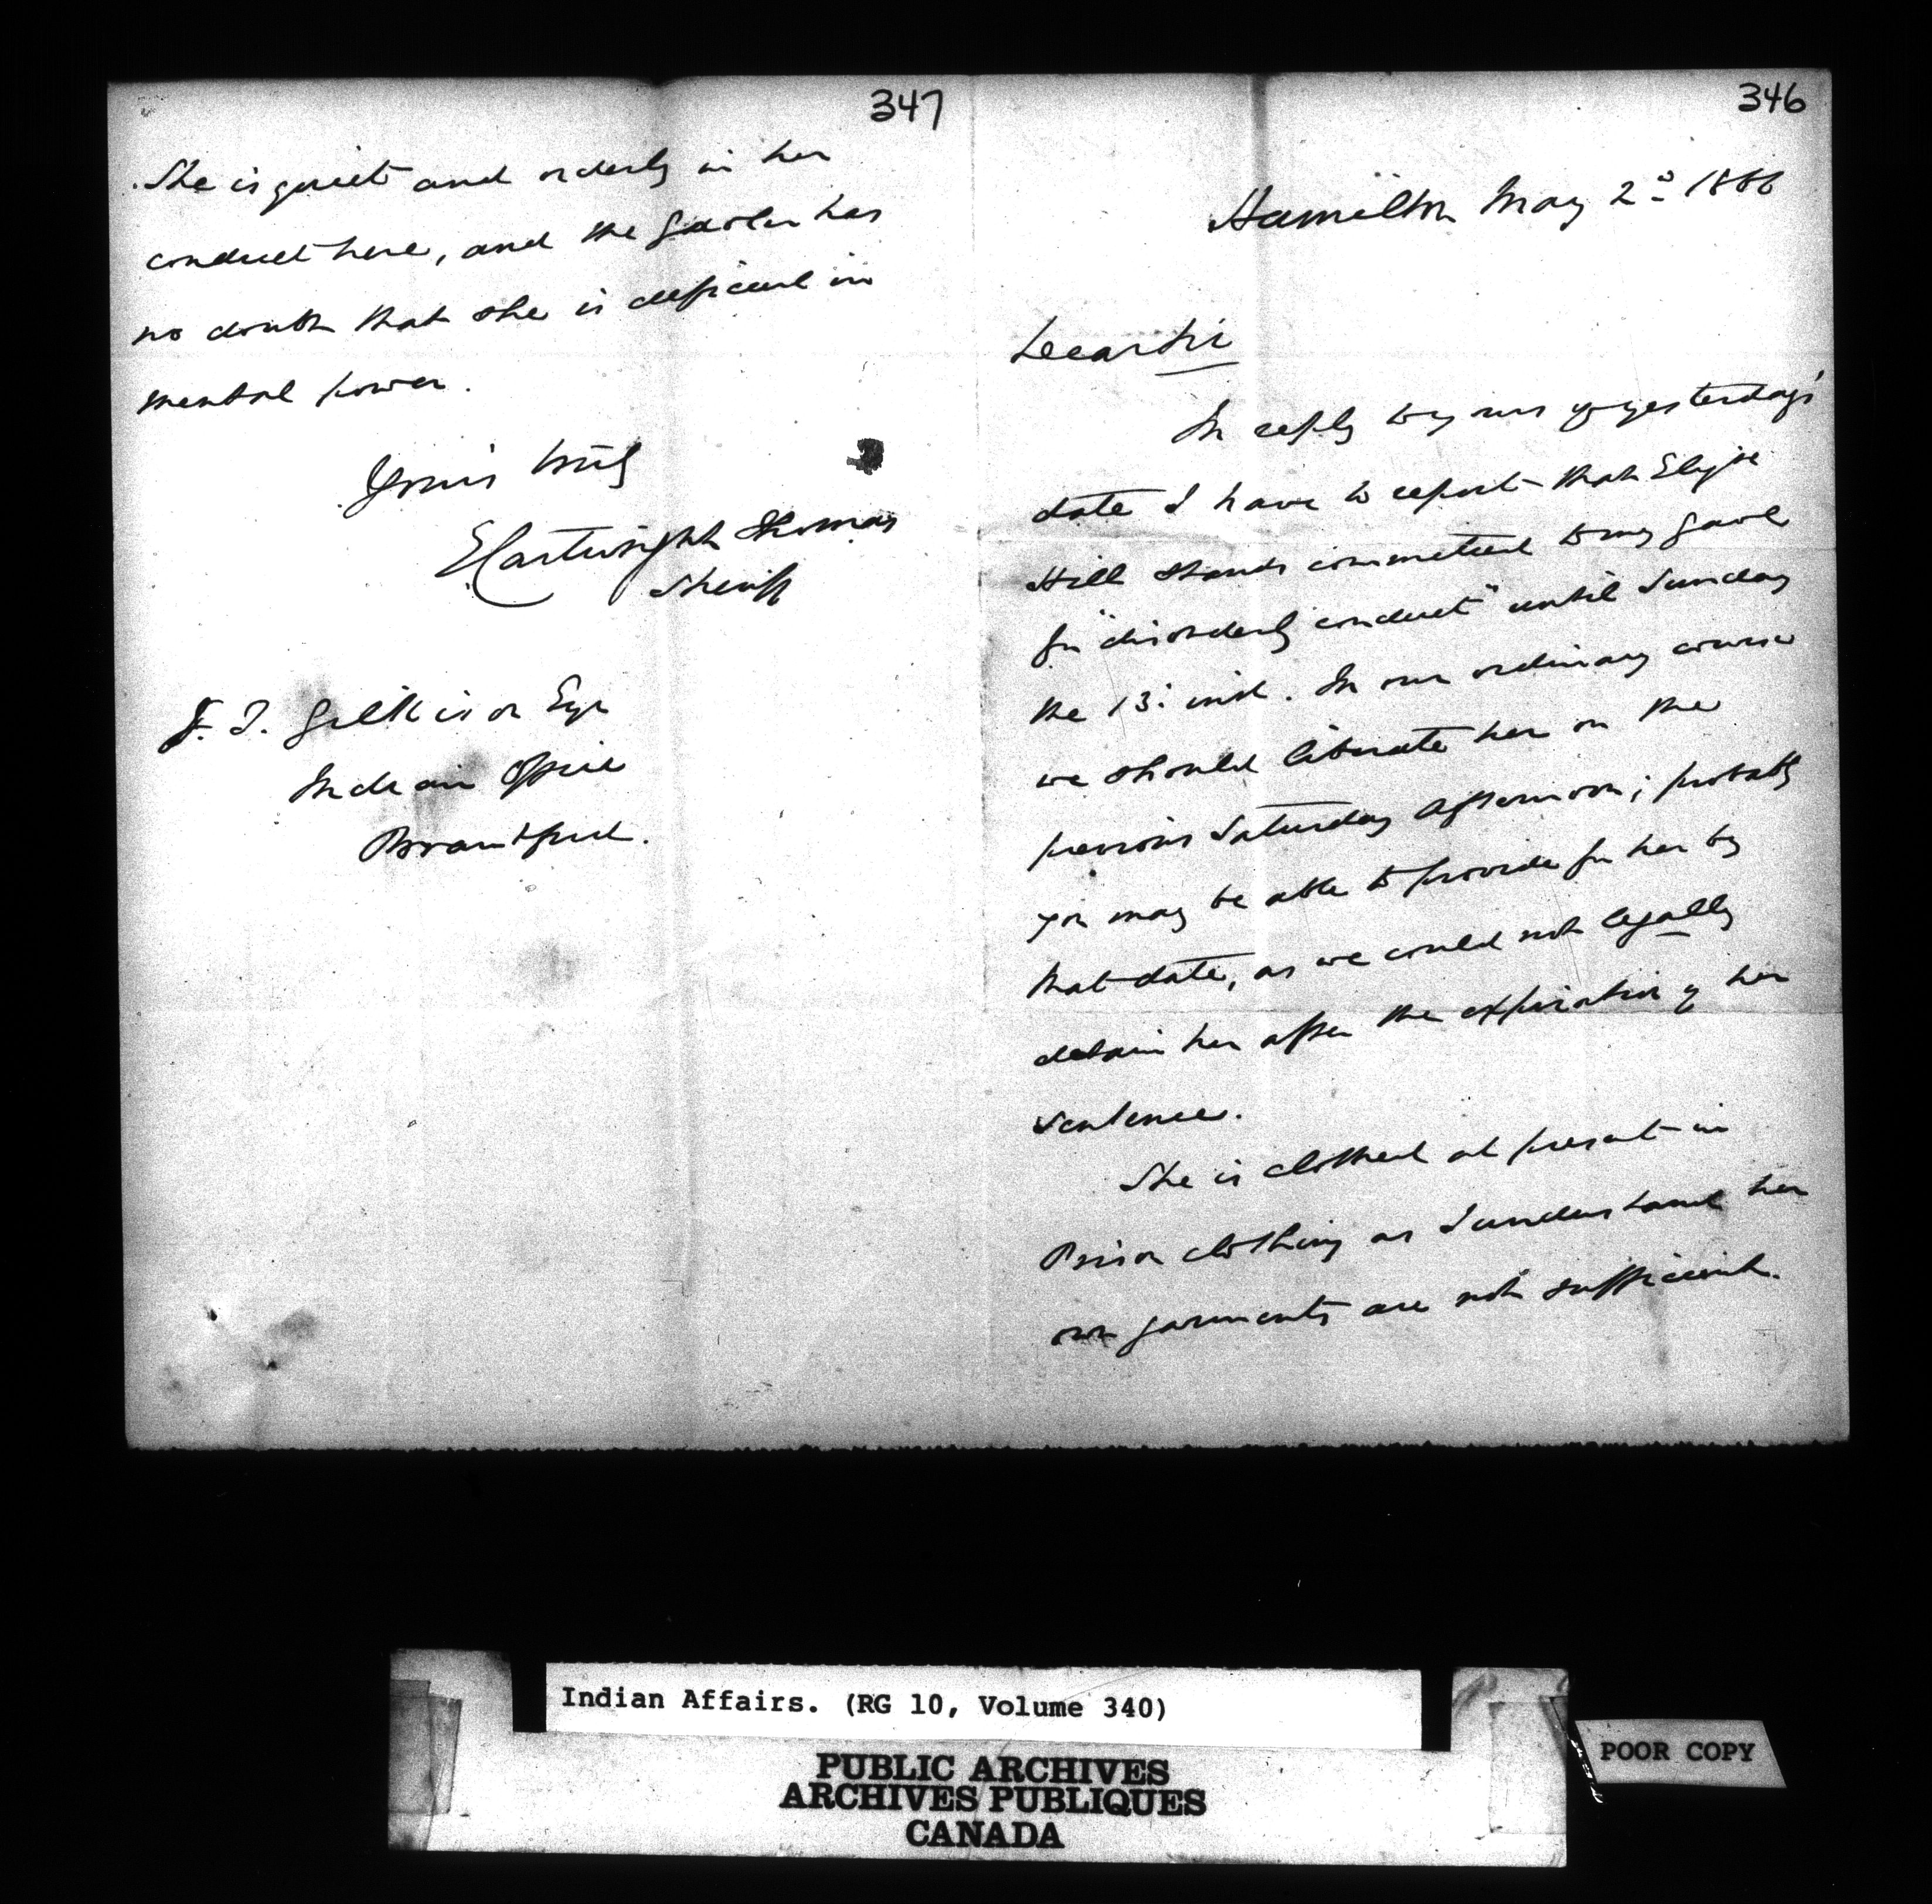 346
Hamilton May 2d 1866
Dear Sir
In reply to yours of yesterday's
date I have to report that Elyse
Hill stands committed to my gaol
for "disorderly conduct" until Sunday
the 13: inst. In our ordinary course
we should liberate her on the
previous Saturday afternoon; probably
you may be able to provide for her by
that date, as we could not legally
detain her after the expiration of her
sentence.
She is clothed at present in
Prison clothing as I understand her
own garments are not sufficient.
347
She is quiet and orderly in her
conduct here, and the Gaoler has
no doubt that she is deficient in
mental power.
Yours truly
E Cartwright Thomas
Sheriff
J. T. Gilkison Esqr
Indian Office
Brantford.
Indian Affairs. (RG 10, Volume 340)
PUBLIC ARCHIVES
ARCHIVES PUBLIQUES
CANADA
POOR COPY